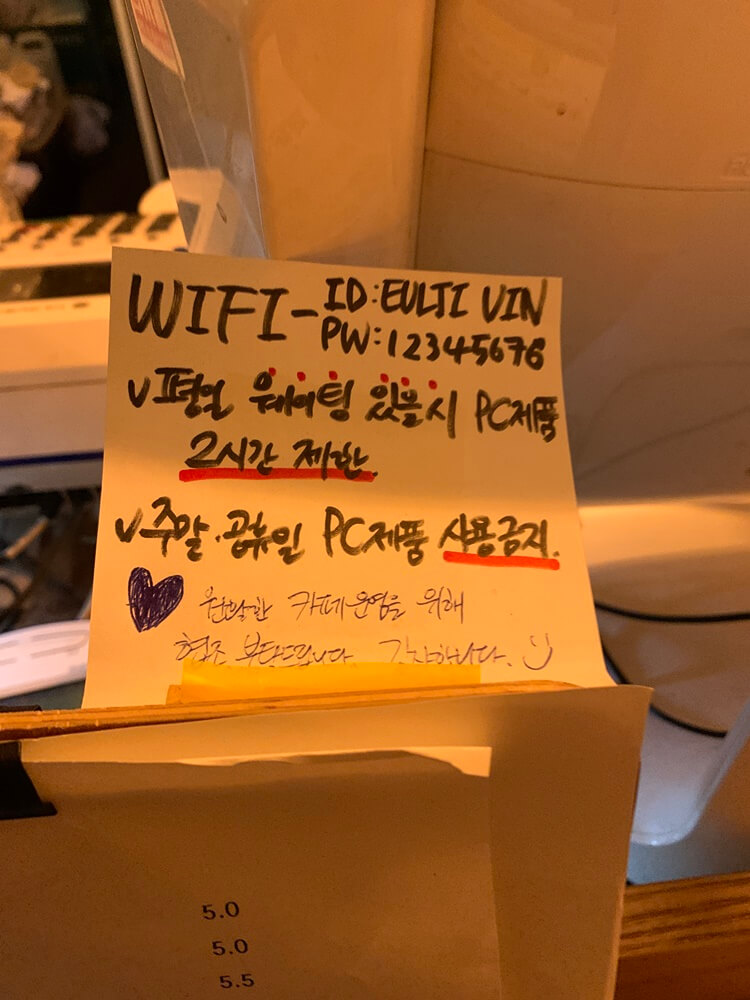 WIFI - ID: EULJI VIN
PW: 12345676
v 평일 웨이팅 있을 시 PC제품
2시간 제한.
v 주말·공휴일 PC제품 사용금지.
원활한 카페운영을 위해
협조 부탁드립니다 감사합니다. :)
5.0
5.0
5.5